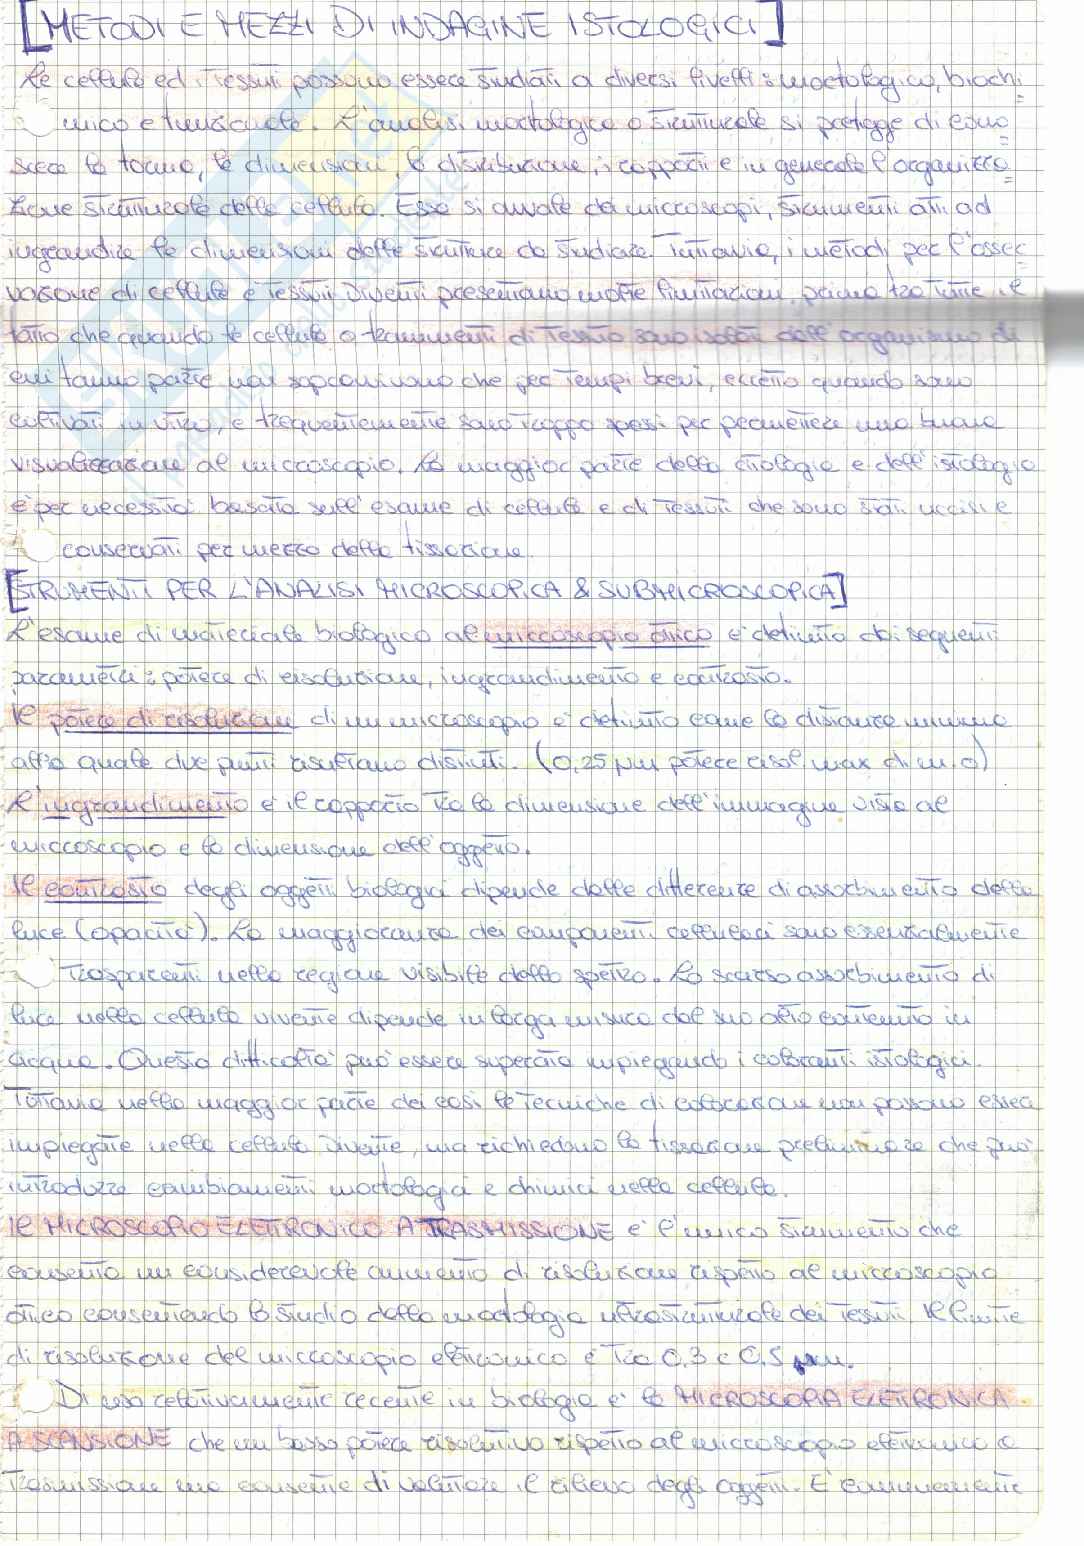 [METODI E MEZZI DI INDAGINE ISTOLOGICI]
Le cellule ed i tessuti possono essere studiati a diversi livelli: morfologico, biochi
mico e funzionale. L'analisi morfologica o strutturale si prefigge di cono
scere la forma, le dimensioni, la distribuzione, i rapporti e in generale l'organizza
zione strutturale della cellula. Essa si avvale dei microscopi, strumenti atti ad
ingrandire le dimensioni delle strutture da studiare. Tuttavia, i metodi per l'osser
vazione di cellule e tessuti viventi presentano molte limitazioni, primo tra tutte il
fatto che quando le cellule o frammenti di tessuto sono isolati dall'organismo di
cui fanno parte non sopravvivono che per tempi brevi, eccetto quando sono
coltivati in vitro, e frequentemente sono troppo spessi per permettere una buona
visualizzazione al microscopio. La maggior parte della citologia e dell'istologia
è per necessità basata sull'esame di cellule e di tessuti che sono stati uccisi e
conservati per mezzo della fissazione.
[STRUMENTI PER L'ANALISI MICROSCOPICA & SUBMICROSCOPICA]
L'esame di materiale biologico al microscopio ottico è definito dai seguenti
parametri: potere di risoluzione, ingrandimento e contrasto.
Il potere di risoluzione di un microscopio è definito come la distanza minima
alla quale due punti risultano distinti. (0,25 µm potere risol. max di m.o)
L'ingrandimento è il rapporto tra la dimensione dell'immagine vista al
microscopio e la dimensione dell'oggetto.
Il contrasto degli oggetti biologici dipende dalle differenze di assorbimento della
luce (opacità). La maggioranza dei componenti cellulari sono essenzialmente
trasparenti nella regione visibile dello spettro. Lo scarso assorbimento di
luce nella cellula vivente dipende in larga misura dal suo alto contenuto in
acqua. Questa difficoltà può essere superata impiegando i coloranti istologici.
Tuttavia nella maggior parte dei casi le tecniche di colorazione non possono essere
impiegate nella cellula vivente, ma richiedono la fissazione preliminare che può
introdurre cambiamenti morfologici e chimici nella cellula.
Il MICROSCOPIO ELETTRONICO A TRASMISSIONE è l'unico strumento che
consenta un considerevole aumento di risoluzione rispetto al microscopio
ottico consentendo lo studio della morfologia ultrastrutturale dei tessuti. Il limite
di risoluzione del microscopio elettronico è tra 0,3 e 0,5 nm.
Di uso relativamente recente in biologia è la MICROSCOPIA ELETTRONICA
A SCANSIONE che ha un basso potere risolutivo rispetto al microscopio elettronico a
trasmissione ma consente di valutare il rilievo degli oggetti. È comunemente